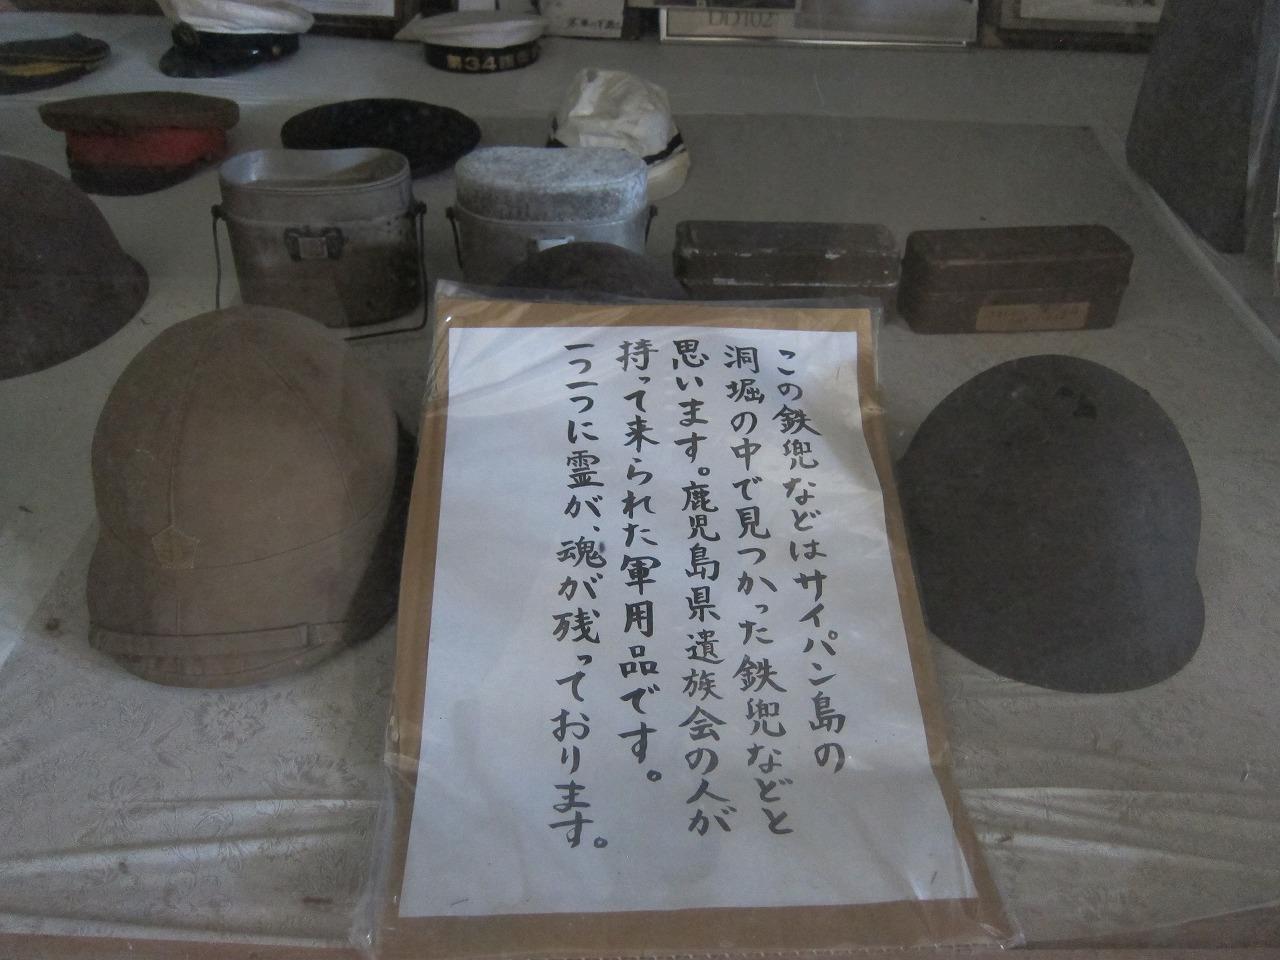 この鉄兜などはサイパン島の
洞堀の中で見つかった鉄兜などと
思います。鹿児島県遺族会の人が
持って来られた軍用品です。
一つ一つに霊が、魂が残っております。
第34掃
DD102